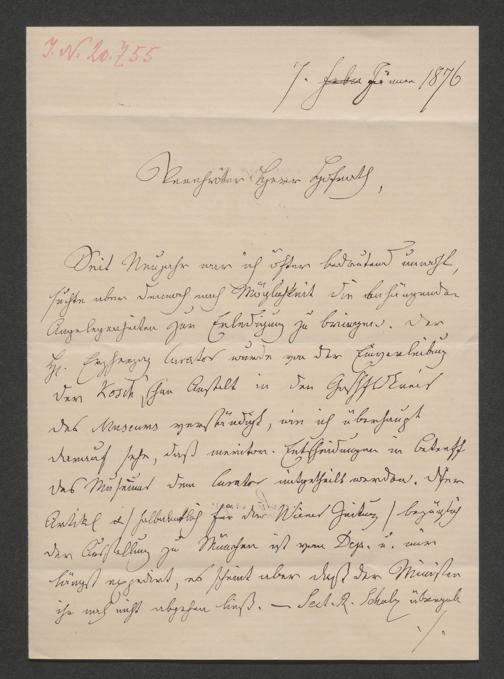 J. N. 20.755
7. Jänner 1876
Verehrter Herr Hofrath,
Seit Neujahr war ich öfter bedeutend unwohl,
suchte aber dennoch nach Möglichkeit die anhängenden
Angelegenheiten zur Erledigung zu bringen. Der
H. Erzherzog Curator wurde von der Einverleibung
der Anstalt in den
des Museums verständigt, wie ich überhaupt
darauf sehe, daß meritor. Entscheidungen in betreff
des Museums dem Curator mitgetheilt werden. Der
Artikel /halbamtlich für die Wiener Zeitung/ bezüglich
der Ausstellung zu München ist vom Dep. u. mir
längst expedirt, es scheint aber daß der Minister
ihn noch nicht abgehen ließ. — Sect. R. Scholz übergab
./.